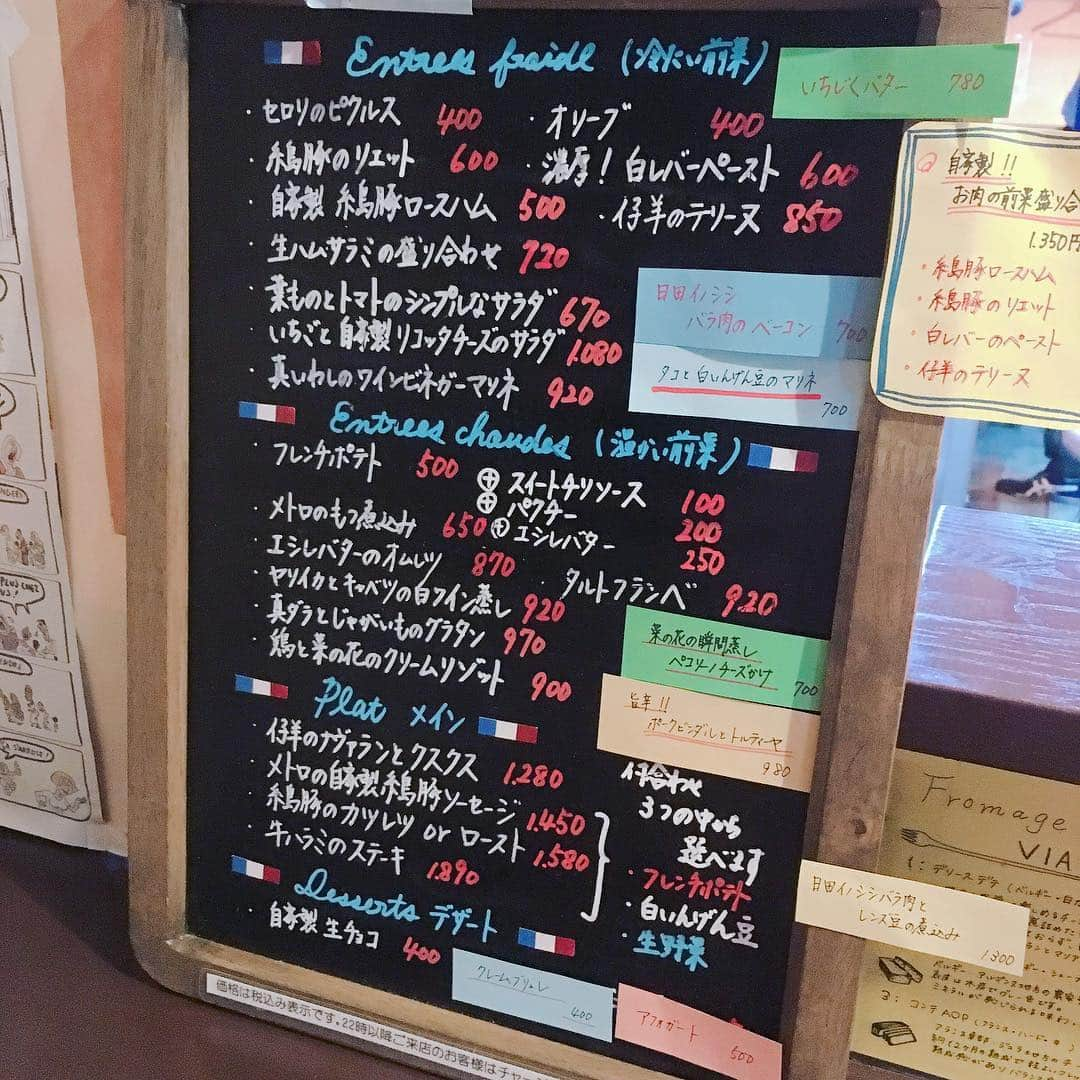 Entrees froide (冷たい前菜)
いちじくバター 780
・セロリのピクルス 400
・オリーブ 400
・糸島豚のリエット 600
・濃厚!白レバーペースト 600
・自家製 糸島豚ロースハム 500
・仔羊のテリーヌ 850
・生ハム・サラミの盛り合わせ 920
・葉ものとトマトのシンプルなサラダ 670
・いちごと自家製リコッタチーズのサラダ 1.080
・真いわしのワインビネガーマリネ 920
日田イノシシ
バラ肉のベーコン 700
タコと白いんげん豆のマリネ
700
自家製!!
お肉の前菜盛り合
1.350円
・糸島豚ロースハム
・糸島豚のリエット
・白レバーのペースト
・仔羊のテリーヌ
Entrees chaudes (温かい前菜)
・フレンチポテト 500
+スイートチリソース 100
+パクチー 200
+エシレバター 250
・メトロのもつ煮込み 650
・エシレバターのオムレツ 870
・タルトフランベ 920
・ヤリイカとキャベツの白ワイン蒸し 920
・真ダラとじゃがいものグラタン 970
・鶏と菜の花のクリームリゾット 900
菜の花の瞬間蒸し
ペコリーノチーズかけ
700
旨辛!!
ポークビンダルとトルティーヤ
980
Plat メイン
・仔羊のナヴァランとクスクス 1.280
・メトロの自家製糸島豚ソーセージ 1.450
・糸島豚のカツレツ or ロースト 1.580
・牛ハラミのステーキ 1.890
付合わせ
3つの中から
選べます
・フレンチポテト
・白いんげん豆
・生野菜
日田イノシシバラ肉と
レンズ豆の煮込み
1300
Desserts デザート
・自家製 生チョコ 400
クレームブリュレ
400
アフォガート
500
価格は税込み表示です。22時以降ご来店のお客様はチャー
Fromage
VIA
3:コンテ AOP